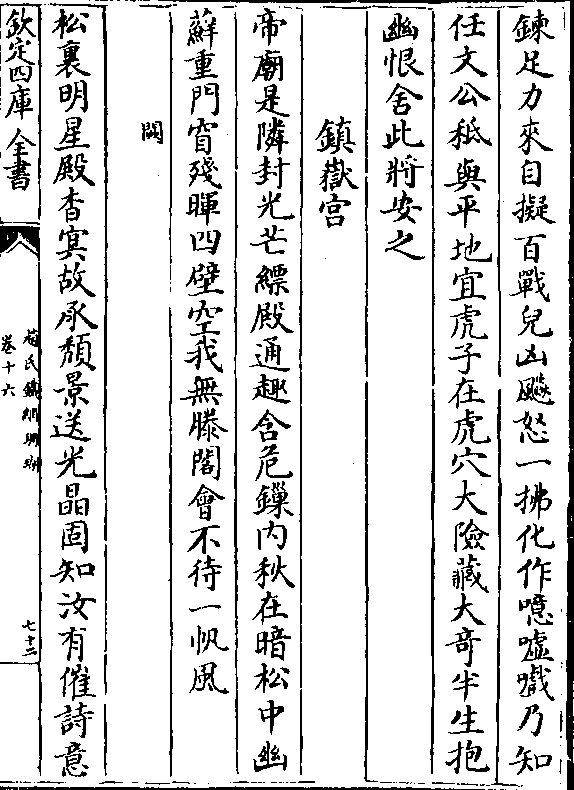 鍊足力來自擬百戰兒凶飈怒一拂化作噫噓嚱乃知
任文公秪與平地宜虎子在虎穴大險藏大竒半生抱
幽恨舍此將安之
鎮嶽宫
帝廟是隣封光芒縹殿通趣含危鏁内秋在暗松中幽
蘚重門窅殘暉四壁空我無滕閣會不待一帆風
闕
松裏明星殿杳㝠故承頽景送光晶固知汝有催詩意
欽定四庫全書
卷十六
七十二